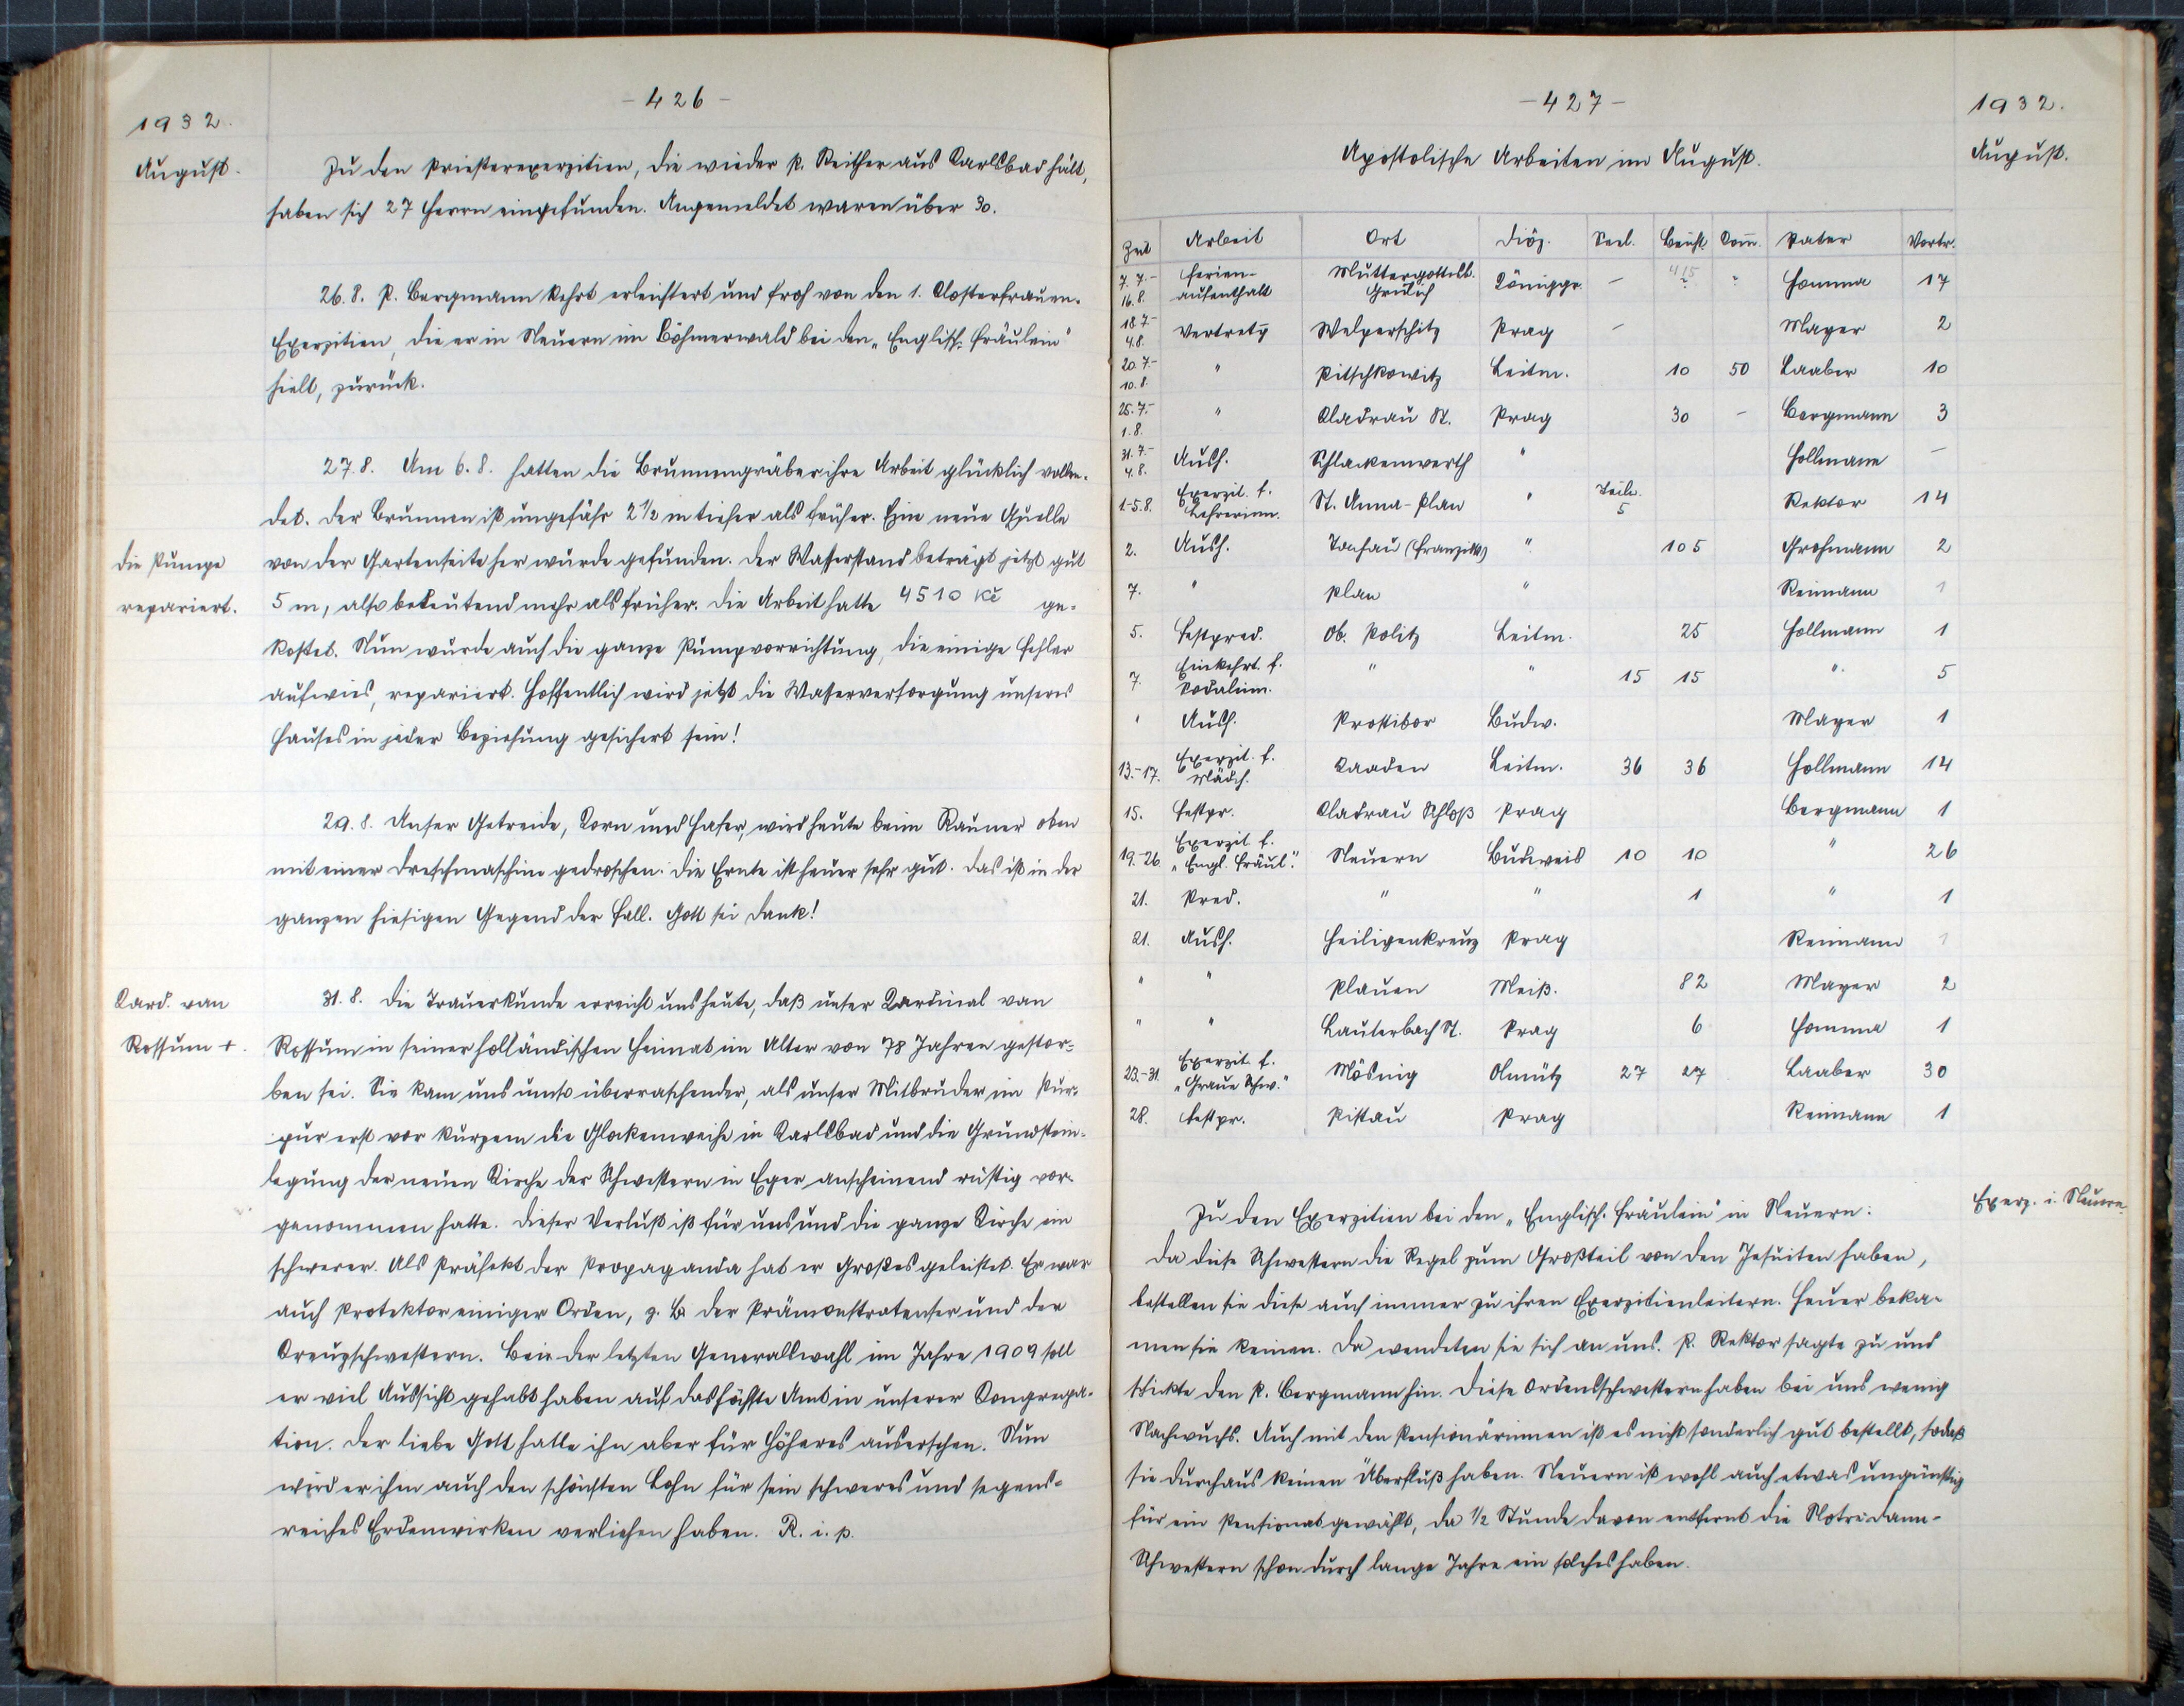 - 426 -
1932.
August.
Zu den Priesterexerzitien, die wieder P. Reither aus Karlsbad hält,
haben sich 27 Herrn eingefunden. Angemeldet waren über 30.
26.8. P. Bergmann kehrt erleichtert und froh von den 1. Klosterfrauen-
Exerzitien, die er in Neuern im Böhmerwald bei den „Englisch. Fräulein"
hielt, zurück.
27.8. Am 6.8. hatten die Brunnengräber ihre Arbeit glücklich vollen-
det. Der Brunnen ist ungefähr 2 1/2 m tiefer als früher. Eine neue Quelle
die Pumpe
von der Gartenseite her wurde gefunden. Der Wasserstand beträgt jetzt gut
repariert.
5 m, also bedeutend mehr als früher. Die Arbeit hatte 4510 Kč ge-
kostet. Nun wurde auch die ganze Pumpvorrichtung, die einige Fehler
aufwies, repariert. Hoffentlich wird jetzt die Wasserversorgung unseres
Hauses in jeder Beziehung gesichert sein!
29.8. Unser Getreide, Korn und Hafer, wird heute beim Rauner oben
mit einer Dreschmaschine gedroschen. Die Ernte ist heuer sehr gut. Das ist in der
ganzen hiesigen Gegend der Fall. Gott sei Dank!
Kard. van
Rossum +.
31.8. Die Trauerkunde erreicht uns heute, daß unser Kardinal van
Rossum in seiner holländischen Heimat im Alter von 78 Jahren gestor-
ben sei. Sie kam uns umso überraschender, als unser Mitbruder im Pur-
pur erst vor kurzem die Glockenweihe in Karlsbad und die Grundstein-
legung der neuen Kirche der Schwestern in Eger anscheinend rüstig vor-
genommen hatte. Dieser Verlust ist für uns und die ganze Kirche ein
schwerer. Als Präfekt der Propaganda hat er Großes geleistet. Er war
auch Protektor einiger Orden, z. B. der Prämonstratenser und der
Kreuzschwestern. Bei der letzten Generalswahl im Jahre 1909 soll
er viel Aussicht gehabt haben auf das höchste Amt in unserer Kongrega-
tion. Der liebe Gott hatte ihn aber für Höheres ausersehen. Nun
wird er ihm auch den schönsten Lohn für sein schweres und segens-
reiches Erdenwirken verliehen haben. R. i. p.
- 427 -
1932.
August.
Apostolische Arbeiten im August.
Zeit Arbeit Ort Diöz. Seel. Beicht. Kom̄. Pater Vortr.
7.7.- 16.8. Ferien-aufenthalt Muttergottesb. Grulich Königgr. - 415 Homma 17
18.7- 4.8. Vertretg Welperschitz Prag - Mayer 2
20.7.- 10.8. " Pitschkowitz Leitm. 10 50 Laaber 10
25.7.- 1.8. " Kladrau St. Prag 30 - Bergmann 3
31.7.- 4.8. Aush. Schlackenwerth " Hollmann -
1.-5.8. Exerzit. f. Lehrerinn. St. Anna-Plan " Teiln. 5 Rektor 14
2. Aush. Tachau (Franzisk) " 105 Grohmann 2
7. " Plan " Reimann 1
5. Festpred. Ob. Politz Leitm. 25 Hollmann 1
7. Einkehrt. f. Sodalinn. " " 15 15 " 5
" Aush. Prostibor Budw. Mayer 1
13.-17. Exerzit. f. Mädch. Kaaden Leitm. 36 36 Hollmann 14
15. Festpr. Kladrau Schloß Prag Bergmann 1
19.-26. Exerzit. f. „Engl. Fräul." Neuern Budweis 10 10 " 26
21. Pred. " " 1 " 1
21. Aush. Heiligenkreuz Prag Reimann 1
" " Plauen Meiß. 82 Mayer 2
" " Lauterbach St. Prag 6 Homma 1
23.-31. Exerzit. f. „Graue Schw." Mösnig Olmütz 27 27 Laaber 30
28. Festpr. Pistau Prag Reimann 1
Exerz. i. Neuern.
Zu den Exerzitien bei den „Englisch. Fräulein" in Neuern:
Da diese Schwestern die Regel zum Großteil von den Jesuiten haben,
bestellen sie diese auch immer zu ihren Exerzitienleitern. Heuer beka-
men sie keinen. Da wendeten sie sich an uns. P. Rektor sagte zu und
schickte den P. Bergmann hin. Diese Ordensschwestern haben bei uns wenig
Nachwuchs. Auch mit den Pensionärinnen ist es nicht sonderlich gut bestellt, sodaß
sie durchaus keinen Überfluß haben. Neuern ist wohl auch etwas ungünstig
für ein Pensionat gewählt, da 1/2 Stunde davon entfernt die Notre-Dame-
Schwestern schon durch lange Jahre ein solches haben.